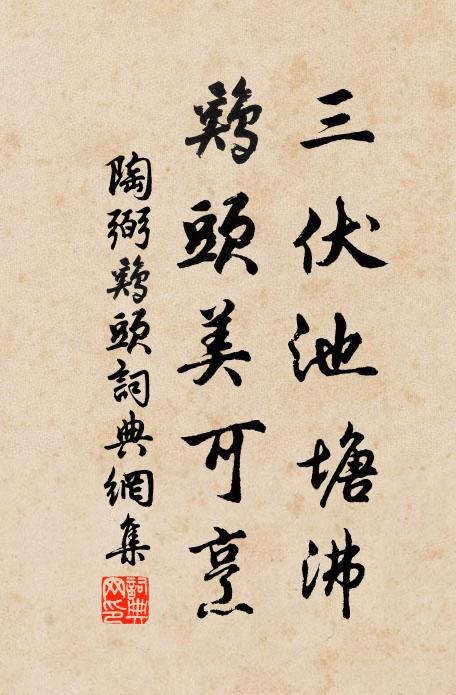 三伏池塘沸
鷄頭美可烹
陶弼鷄頭詞典網集
詞典網印